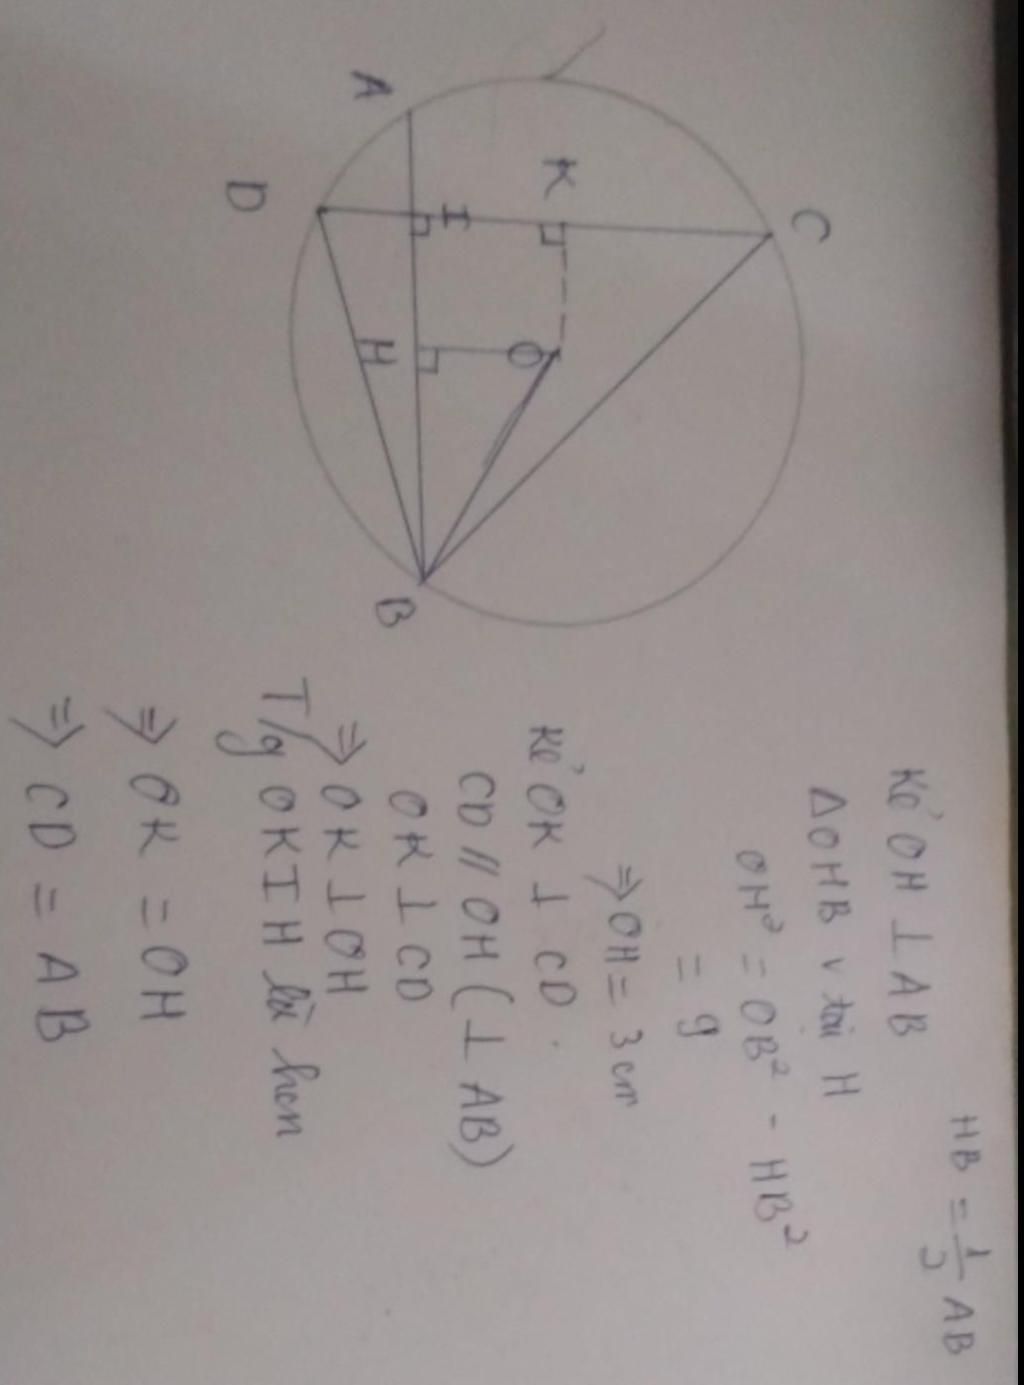 A
D
I
K
C
H
O
B
HB = 1/2 AB
Kẻ OH ⊥ AB
Δ OHB v tại H
OH² = OB² - HB²
= 9
⇒ OH = 3 cm
Kẻ OK ⊥ CD
CD // OH ( ⊥ AB)
OK ⊥ CD
⇒ OK ⊥ OH
T/g OKIH là hcn
⇒ OK = OH
⇒ CD = AB